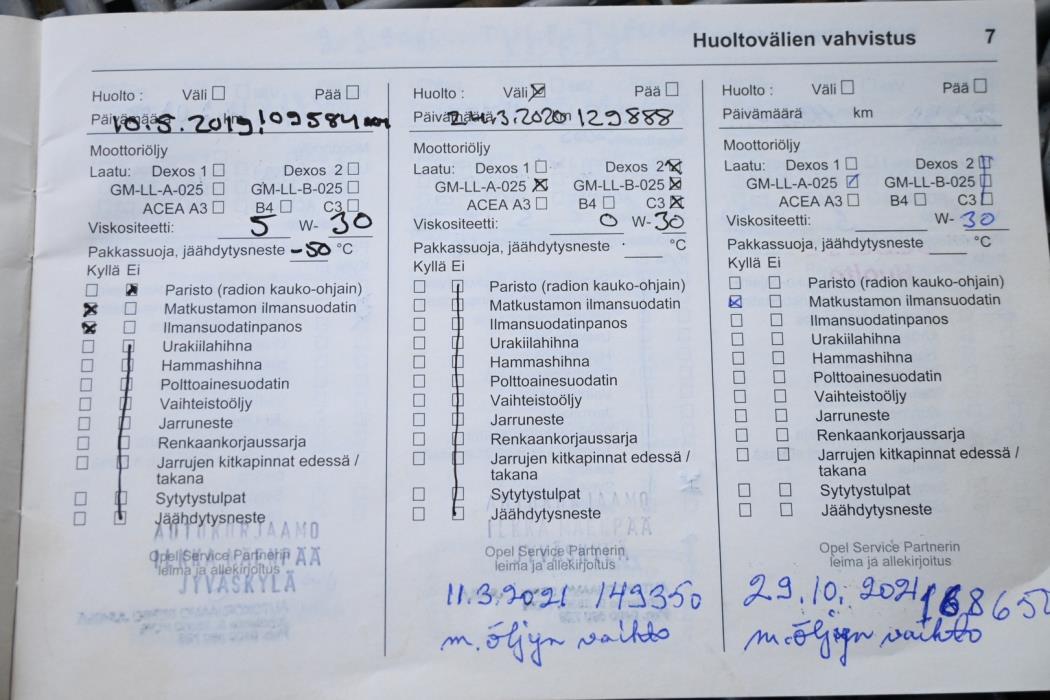 Huoltovälien vahvistus 7
Huolto : Väli Pää
Päivämäärä km
10.5.2019 109584
Moottoriöljy
Laatu: Dexos 1 Dexos 2
GM-LL-A-025 GM-LL-B-025
ACEA A3 B4 C3
Viskositeetti: 5 W- 30
Pakkassuoja, jäähdytysneste -50 °C
Kyllä Ei
Paristo (radion kauko-ohjain)
Matkustamon ilmansuodatin
Ilmansuodatinpanos
Urakiilahihna
Hammashihna
Polttoainesuodatin
Vaihteistoöljy
Jarruneste
Renkaankorjaussarja
Jarrujen kitkapinnat edessä /
takana
Sytytystulpat
Jäähdytysneste
AUTOKORJAAMO
Opel Service Partnerin
leima ja allekirjoitus
JYVÄSKYLÄ
Huolto : Väli Pää
Päivämäärä km
.3.2020 129888
Moottoriöljy
Laatu: Dexos 1 Dexos 2
GM-LL-A-025 GM-LL-B-025
ACEA A3 B4 C3
Viskositeetti: 0 W-30
Pakkassuoja, jäähdytysneste °C
Kyllä Ei
Paristo (radion kauko-ohjain)
Matkustamon ilmansuodatin
Ilmansuodatinpanos
Urakiilahihna
Hammashihna
Polttoainesuodatin
Vaihteistoöljy
Jarruneste
Renkaankorjaussarja
Jarrujen kitkapinnat edessä /
takana
Sytytystulpat
Jäähdytysneste
Opel Service Partnerin
leima ja allekirjoitus
JYVÄSKYLÄ
11.3.2021 149350
m. öljyn vaihto
Huolto : Väli Pää
Päivämäärä km
Moottoriöljy
Laatu: Dexos 1 Dexos 2
GM-LL-A-025 GM-LL-B-025
ACEA A3 B4 C3
Viskositeetti: W- 30
Pakkassuoja, jäähdytysneste °C
Kyllä Ei
Paristo (radion kauko-ohjain)
Matkustamon ilmansuodatin
Ilmansuodatinpanos
Urakiilahihna
Hammashihna
Polttoainesuodatin
Vaihteistoöljy
Jarruneste
Renkaankorjaussarja
Jarrujen kitkapinnat edessä /
takana
Sytytystulpat
Jäähdytysneste
Opel Service Partnerin
leima ja allekirjoitus
29.10.2021
m. öljyn vaihto